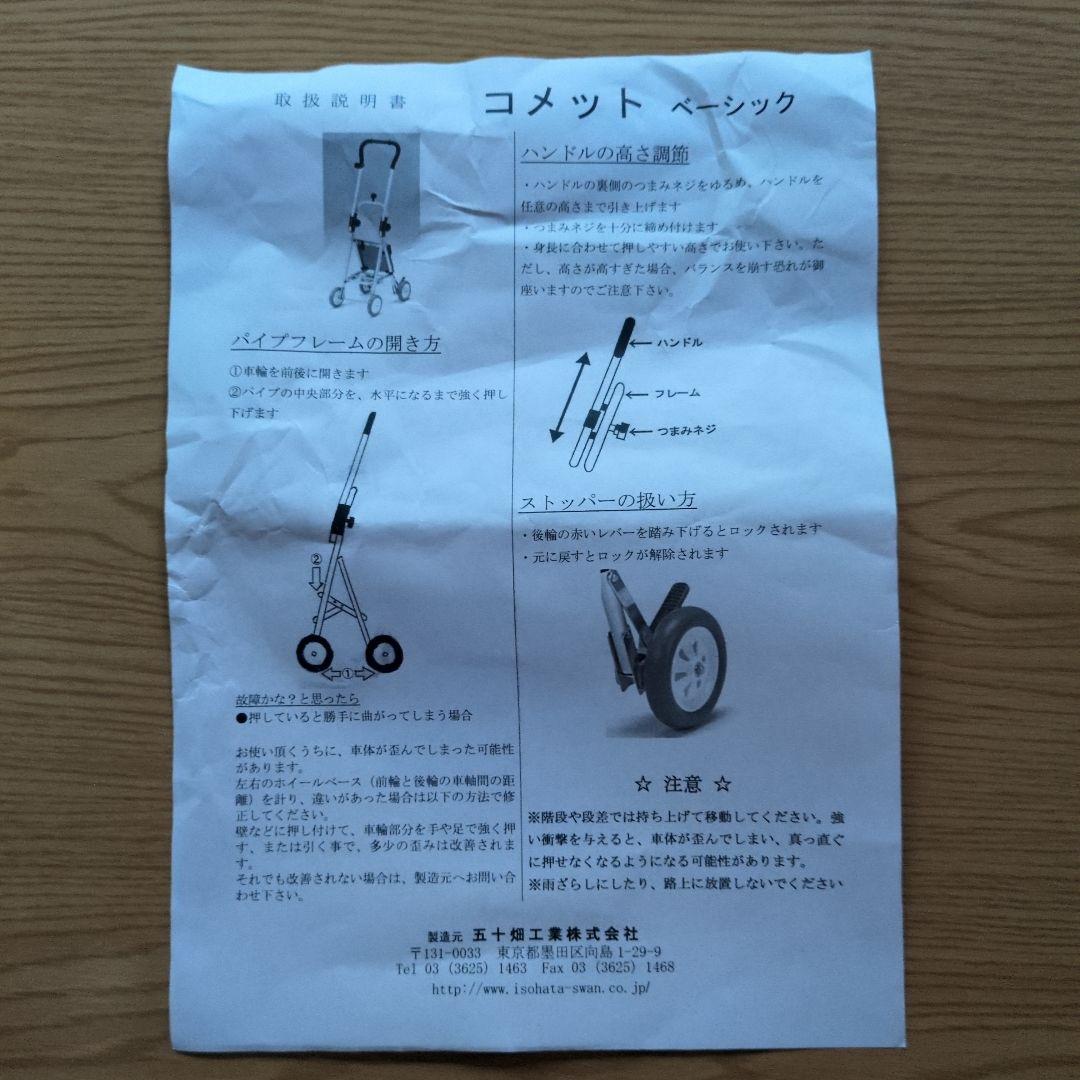 取扱説明書
コメット ベーシック
パイプフレームの開き方
①車輪を前後に開きます
②パイプの中央部分を、水平になるまで強く押し
下げます
②
①
故障かな？と思ったら
●押していると勝手に曲がってしまう場合
お使い頂くうちに、車体が歪んでしまった可能性
があります。
左右のホイールベース（前輪と後輪の車軸間の距
離）を計り、違いがあった場合は以下の方法で修
正してください。
壁などに押し付けて、車輪部分を手や足で強く押
す、または引く事で、多少の歪みは改善されま
す。
それでも改善されない場合は、製造元へお問い合
わせ下さい。
ハンドルの高さ調節
・ハンドルの裏側のつまみネジをゆるめ、ハンドルを
任意の高さまで引き上げます
・つまみネジを十分に締め付けます
・身長に合わせて押しやすい高さでお使い下さい。た
だし、高さが高すぎた場合、バランスを崩す恐れが御
座いますのでご注意下さい。
ハンドル
フレーム
つまみネジ
ストッパーの扱い方
・後輪の赤いレバーを踏み下げるとロックされます
・元に戻すとロックが解除されます
☆ 注意 ☆
※階段や段差では持ち上げて移動してください。強
い衝撃を与えると、車体が歪んでしまい、真っ直ぐ
に押せなくなるようになる可能性があります。
※雨ざらしにしたり、路上に放置しないでください
製造元 五十畑工業株式会社
〒131-0033 東京都墨田区向島1-29-9
Tel 03 (3625) 1463 Fax 03 (3625) 1468
http://www.isohata-swan.co.jp/